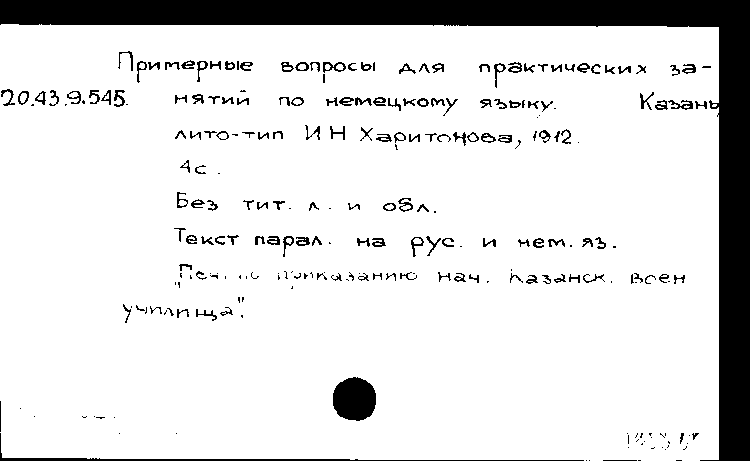 Примерные вопросы для практических за-
20.43.9.545. нятий по немецкому языку. Казань
лито-тип И Н Харитонова, 1912.
4с.
Без тит. л. и обл.
Текст парал. на рус. и нем. яз.
"Печ. по приказанию нач. Казанск. воен
училища".